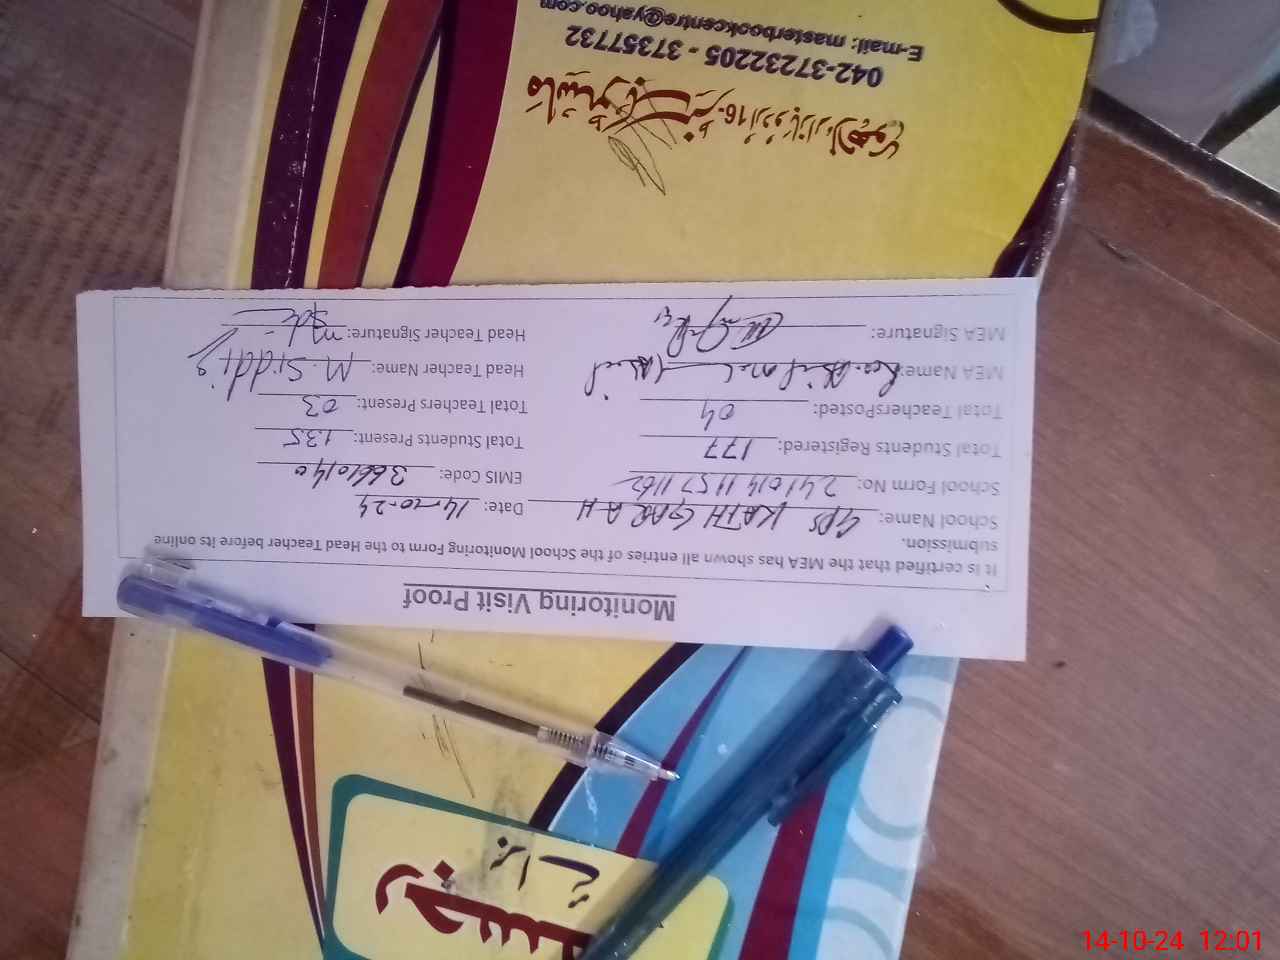 Monitoring Visit Proof
It is certified that the MEA has shown all entries of the School Monitoring Form to the Head Teacher before its online
submission.
School Name: GPS KATH GARAH Date: 14-10-24
School Form No: EMIS Code:
Total Students Registered: 177 Total Students Present: 135
Total TeachersPosted: 04 Total Teachers Present: 03
MEA Name: Head Teacher Name: M. Siddiq
MEA Signature: Head Teacher Signature:
رجسٹر
برائے
16-اردو بازار، لاہور
042-37232205 - 37357732
E-mail: masterbookcentre@yahoo.com
14-10-24 12:01